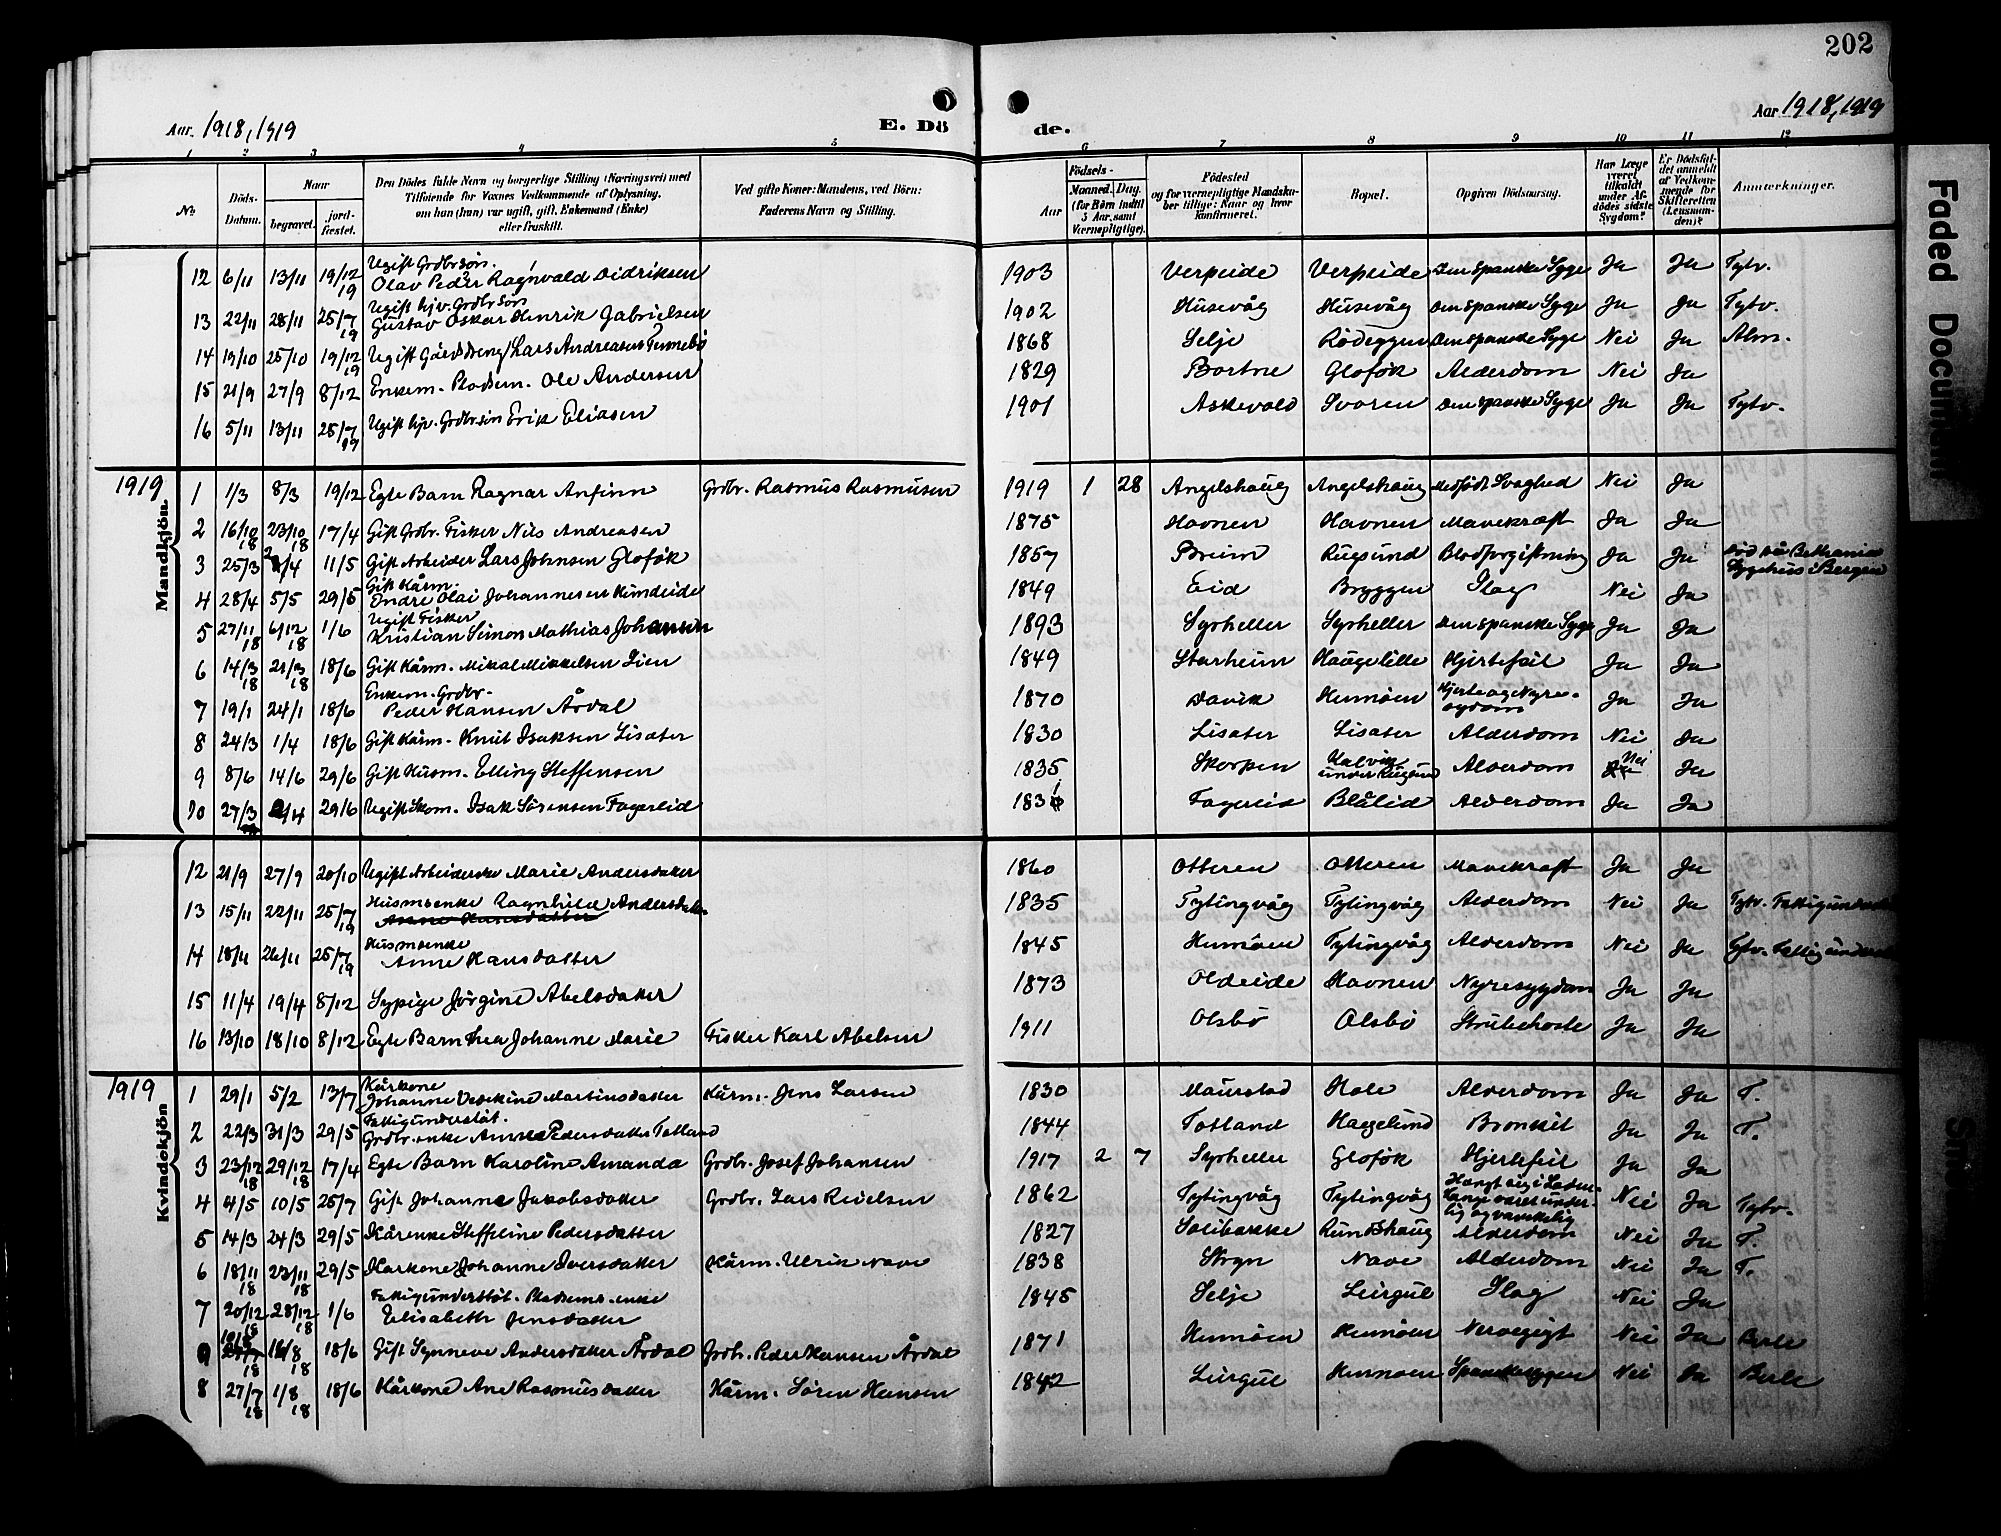 202
Aar. 1918, 1919
E. Dö
de.
Aar 1918, 1919
1 2 3 4 5 6 7 8 9 10 11 12
No.
Döds-Datum.
Naar
begravet.
jord-fæstet.
Den Dödes fulde Navn og borgerlige Stilling (Næringsvei) med
Tilföiende for Voxnes Vedkommende af Oplysning,
om han (hun) var ugift, gift, Enkemand (Enke)
eller fraskilt.
Ved gifte Koner: Mandens, ved Börn:
Faderens Navn og Stilling.
Födsels-
Aar
Maaned. Dag.
(for Börn indtil
5 Aar samt
Værnepligtige).
Födested
og for værnepligtige Mandskaber tillige: Naar og hvor
konfirmeret.
Bopæl.
Opgiven Dödsaarsag.
Har Læge
været
tilkaldt
under Afdödes sidste
Sygdom?
Er Dödsfaldet anmeldt
af Vedkommende for
Skifteretten
(Lensmanden)?
Anmærkninger.
12 6/11 13/11 19/12 19 Ugift Grdbr.sön. Olav Peder Ragnvald Didriksen 1903 Verpeide Verpeide Den spanske Syge Ja Ja Tytv.
13 22/11 28/11 25/7 19 Ugift hjv. Grdbr sön Gustav Oskar Henrik Gabrielsen 1902 Husevåg Husevåg Den spanske Syge Ja Ja Tytv.
14 19/10 25/10 19/12 19 Ugift Lars Andreasen 1868 Selje Rödeggen Den spanske Syge Nei Ja Alm.
15 21/9 27/9 8/12 Enkem. Pladsm. Ole Andersen 1829 Bortne Glofök Alderdom Nei Ja
16 5/11 13/11 25/7 19 Ugift hjv. Grdbr sön Erik Eliasen 1901 Askevold Svoren Den spanske Syge Ja Ja Tytv.
1919
Mandkjön.
1 1/3 8/3 19/12 Egte Barn Ragnar Anfinn Grdbr. Rasmus Rasmusen 1919 1 28 Angelshaug Angelshaug Medfödt Svaghed Nei Ja
2 16/10 18 23/10 18 17/4 Gift Grdbr. Fisker Nils Andreasen 1875 Havnen Havnen Mavekræft Ja Ja
3 25/3 2/4 11/5 Gift Arbeider Lars Johnsen Glofök 1857 Breim Rugsund Blodforgiftning Ja Ja Död på Bethania Sygehus i Bergen
4 28/4 5/5 29/5 Gift Kårm. Endre Olai Johannesen Rimdeide 1849 Eid Bryggen Slag Nei Ja
5 27/11 18 6/12 18 1/6 Ugift Fisker Kristian Simon Mathias Johansen 1893 Syrheller Syrheller Den spanske Syge Ja Ja
6 14/3 18 21/3 18 18/6 Gift Kårm. Mikal Mikkelsen Lien 1849 Starheim Haugelille Hjertefeil Ja Ja
7 19/1 24/1 18/6 Enkem. Grdbr. Peder Hansen Årdal 1870 Davik Hennöen Hjerte og Nyresygdom Ja Ja
8 24/3 1/4 18/6 Gift Kårm. Knut Isaksen Lisæter 1830 Lisæter Lisæter Alderdom Nei Ja
9 8/6 14/6 29/6 Gift Husm. Elling Steffensen 1835 Skorpen Kalvik under Rugsund Alderdom Nei Ja
10 27/3 2/4 29/6 Ugift Isak Sörensen Fagerlid 1831 Fagerlid Blålid Alderdom Ja Ja
12 21/9 27/9 20/10 Ugift Arbeiderske Marie Andersdatter 1860 Otteren Otteren Mavekræft Ja Ja
13 15/11 22/11 25/7 19 Husmsenke Ragnhild Andersdatter Anne Hansdatter 1835 Tytingvåg Tytingvåg Alderdom Nei Ja Tytv. Fattigunderst
14 18/11 26/11 25/7 19 Husmsenke Anne Hansdatter 1845 Hennöen Tytingvåg Alderdom Nei Ja Tytv. Fattigunderst
15 11/4 19/4 8/12 Sypige Jörgine Abelsdatter 1873 Oldeide Havnen Nyresygdom Ja Ja
16 13/10 18/10 8/12 Egte Barn Thea Johanne Marie Fisker Karl Abelsen 1911 Olsbö Olsbö Strubehoste Ja Ja
1919
Kvindekjön
1 29/1 5/2 13/7 Kårkone Johanne Martinusdatter Kårm. Jens Larsen 1830 Maurstad Hole Alderdom Ja Ja T.
2 22/3 31/3 29/5 Fattigunderstöt. Grdbr. enke Anne Pedersdatter Totland 1844 Totland Haggelund Bronkit Ja Ja T.
3 23/12 18 29/12 18 17/4 Egte Barn Karoline Amanda Grdbr. Josef Johansen 1917 2 7 Syrheller Glofök Hjertefeil Ja Ja
4 4/5 10/5 25/7 Gift Johanne Jakobsdatter Grdbr. Lars Reielsen 1862 Tytingvåg Tytingvåg Hængt sig i Laden. Længe været underlig og vanskelig Nei Ja Tytv.
5 14/3 24/3 29/5 Kårenke Steffeline Pedersdatter 1827 Solibakke Rundshaug Alderdom Nei Ja T.
6 18/11 18 23/11 18 29/5 Kårkone Johanne Iversdatter Kårm. Ulrik Nave 1838 Stryn Nave Alderdom Nei Ja T.
7 20/12 18 28/12 18 1/6 Fattigunderstöt. Pladsms. enke Elisabeth Jensdatter 1845 Selje Leirgul Slag Nei Ja
9 18/8 18 18/6 Gift Synneve Andersdatter Årdal Grdb. Peder Hansen Årdal 1871 Hennöen Hennöen Nervegigt Nei Ja Berle
8 27/7 18 1/8 18 18/6 Kårkone Ane Rasmusdatter Kårm. Sören Hansen 1842 Leirgul Hennöen Spanskesygen Nei Ja Berle
Faded Document